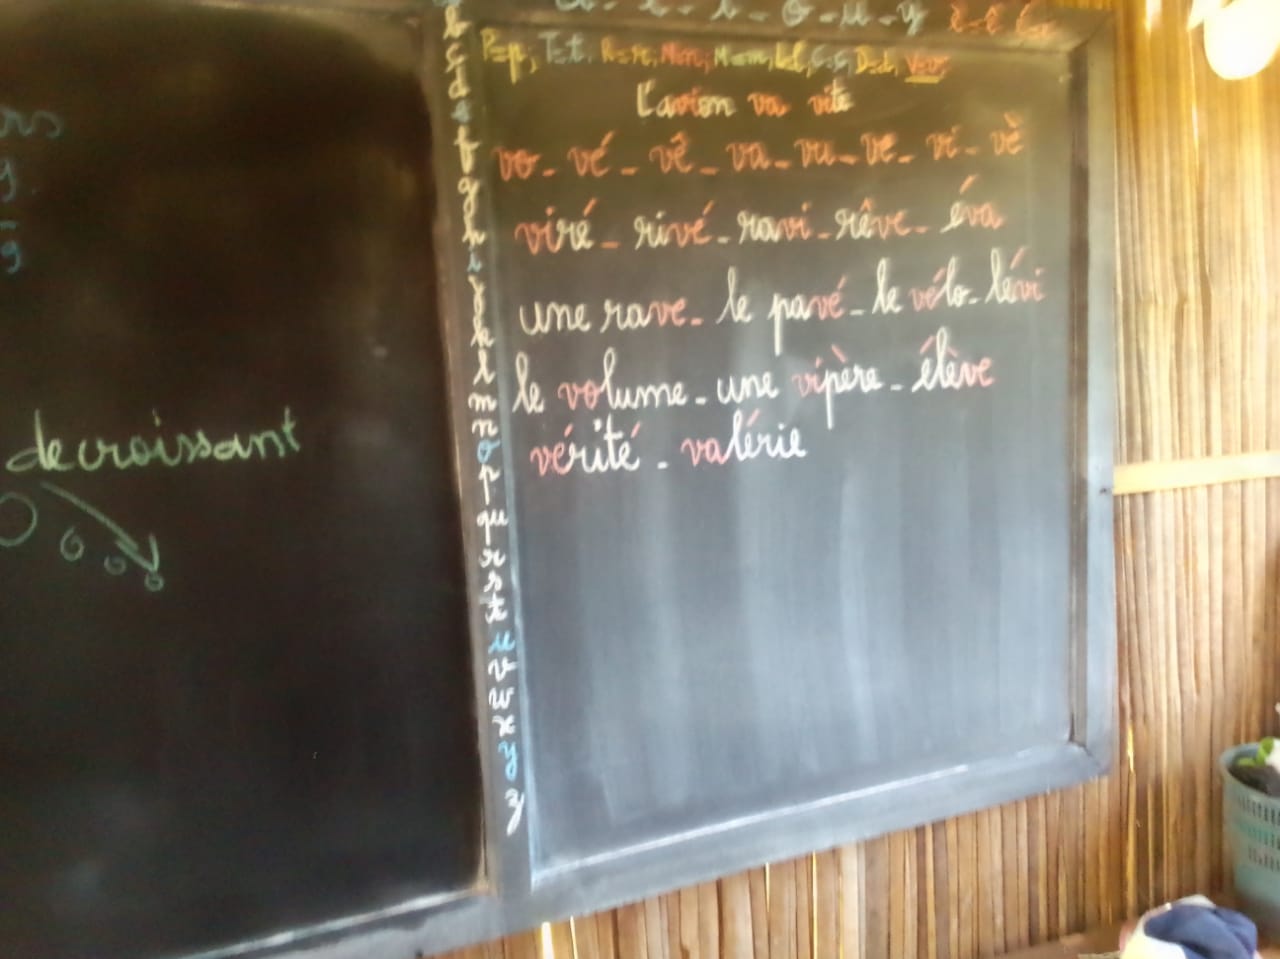 decroissant
b
c
d
e
f
g
h
i
j
k
l
m
n
o
p
qu
r
s
t
u
v
w
x
y
z
i - o - u - y
P=p; T=t; R=r; N=n; M=m; L=l; C=c; D=d; V=v;
l'avion va vite
vo - vé - vê - va - vu - ve - vi - vè
viré - rivé - ravi - rêve - éva
une rave - le pavé - le vélo - lévi
le volume - une vipère - élève
vérité - valérie